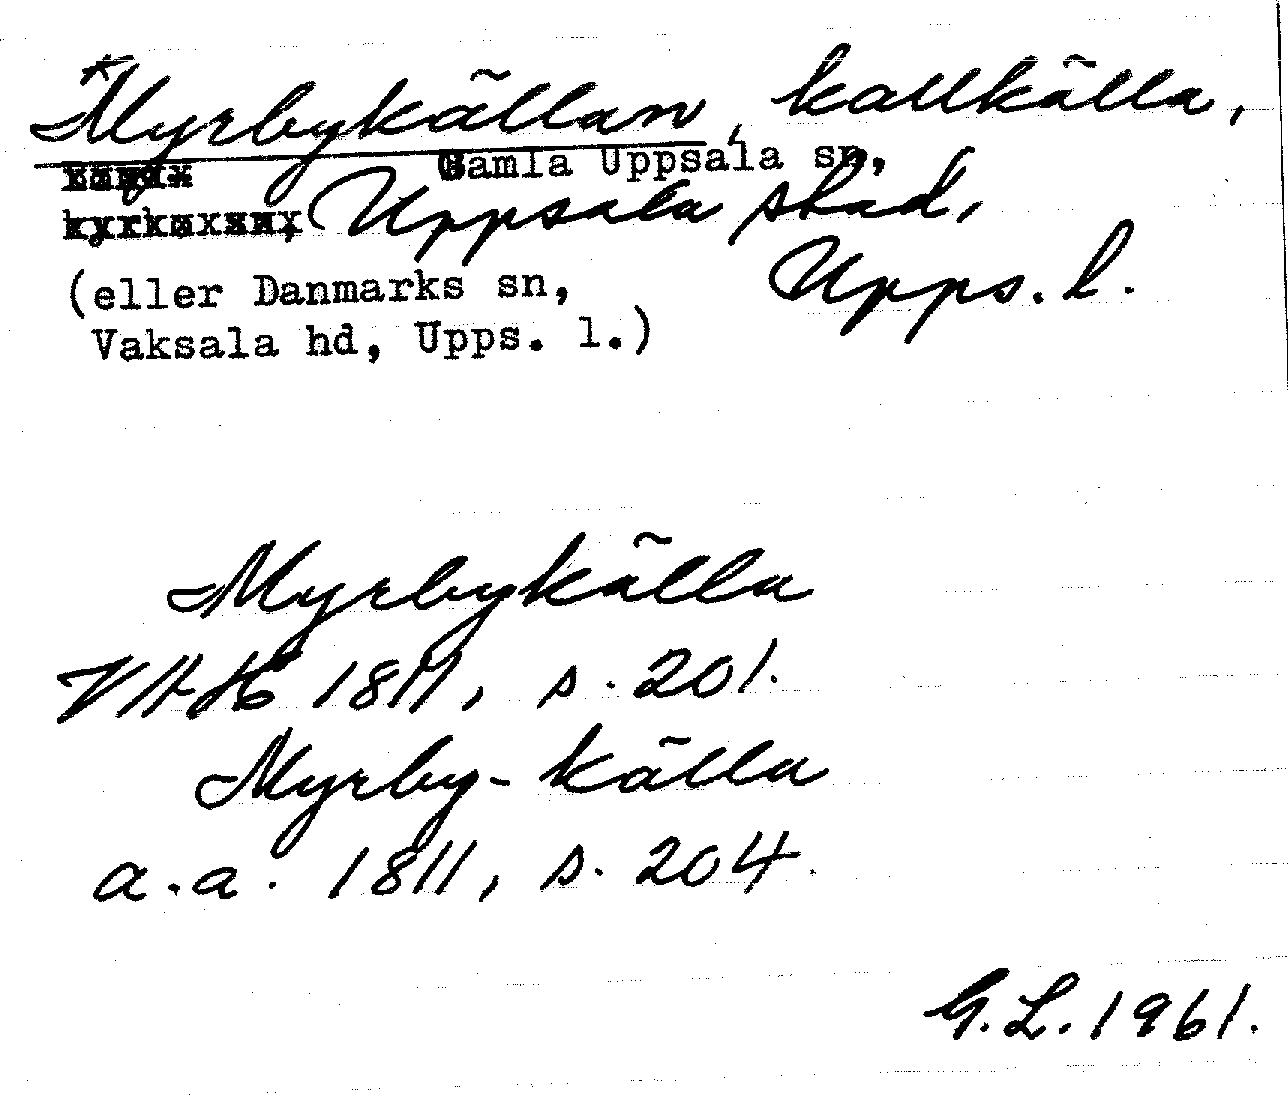 *Myrbykällan, kallkälla,
Gamla Uppsala sn,
Uppsala stad,
Upps. l.
(eller Danmarks sn,
Vaksala hd, Upps. l.)
Myrbykälla
VAH 1811, s. 201.
Myrby-källa
a.a. 1811, s. 204.
G.L. 1961.